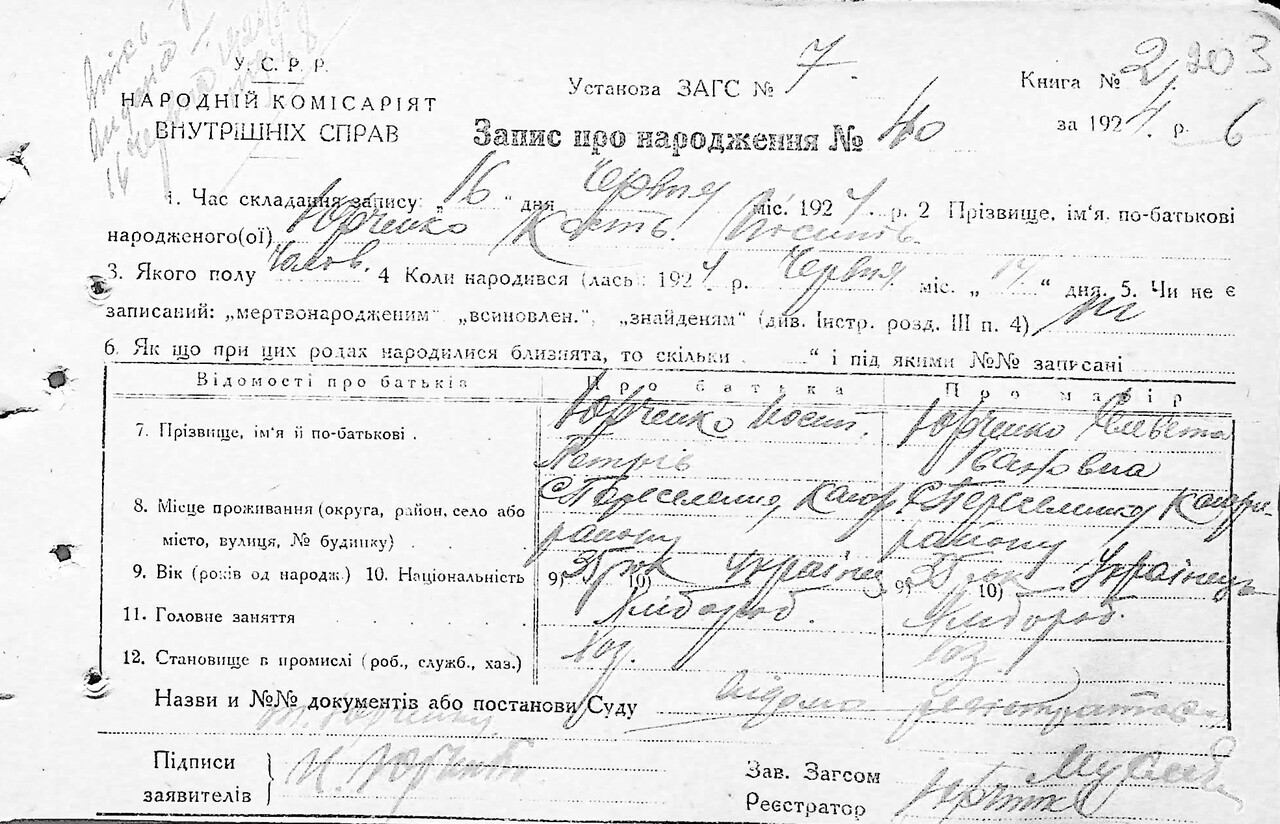 У.С.Р.Р.
НАРОДНІЙ КОМІСАРІЯТ
ВНУТРІШНІХ СПРАВ
Установа ЗАГС № 7
Книга № 2 203
за 1924 р. 6
Запис про народження № 40
1. Час складання запису: „16" дня Червня міс. 1924 р. 2 Прізвище, ім'я, по-батькові
народженого(ої) Юрченко Кость Йосипов.
3. Якого полу Чолов. 4 Коли народився (лась): 1924 р. Червня міс. „14" дня. 5. Чи не є
записаний: „мертвонародженим" „всиновлен.", „знайденям" (див. Інстр. розд. III п. 4) ні
6. Як що при цих родах народилися близнята, то скільки " і під якими №№ записані
Відомості про батьків Про батька Про матір
7. Прізвище, ім'я й по-батькові Юрченко Йосип Юрченко Єлисвета
Петрів Івановна
8. Місце проживання (округа, район, село або С Переселення Кагор С Переселения Кагорл
місто, вулиця, № будинку) району району
9. Вік (років од народж.) 10. Національність 9) 35 рок 10) Українец 9) 35 рок 10) Українець
11. Головне заняття Хлібороб. Хлібороб.
12. Становище в промислі (роб., служб., хаз.) Хоз. Хоз.
Назви и №№ документів або постанови Суду
Підписи
заявителів
Зав. Загсом
Реєстратор Юрченко